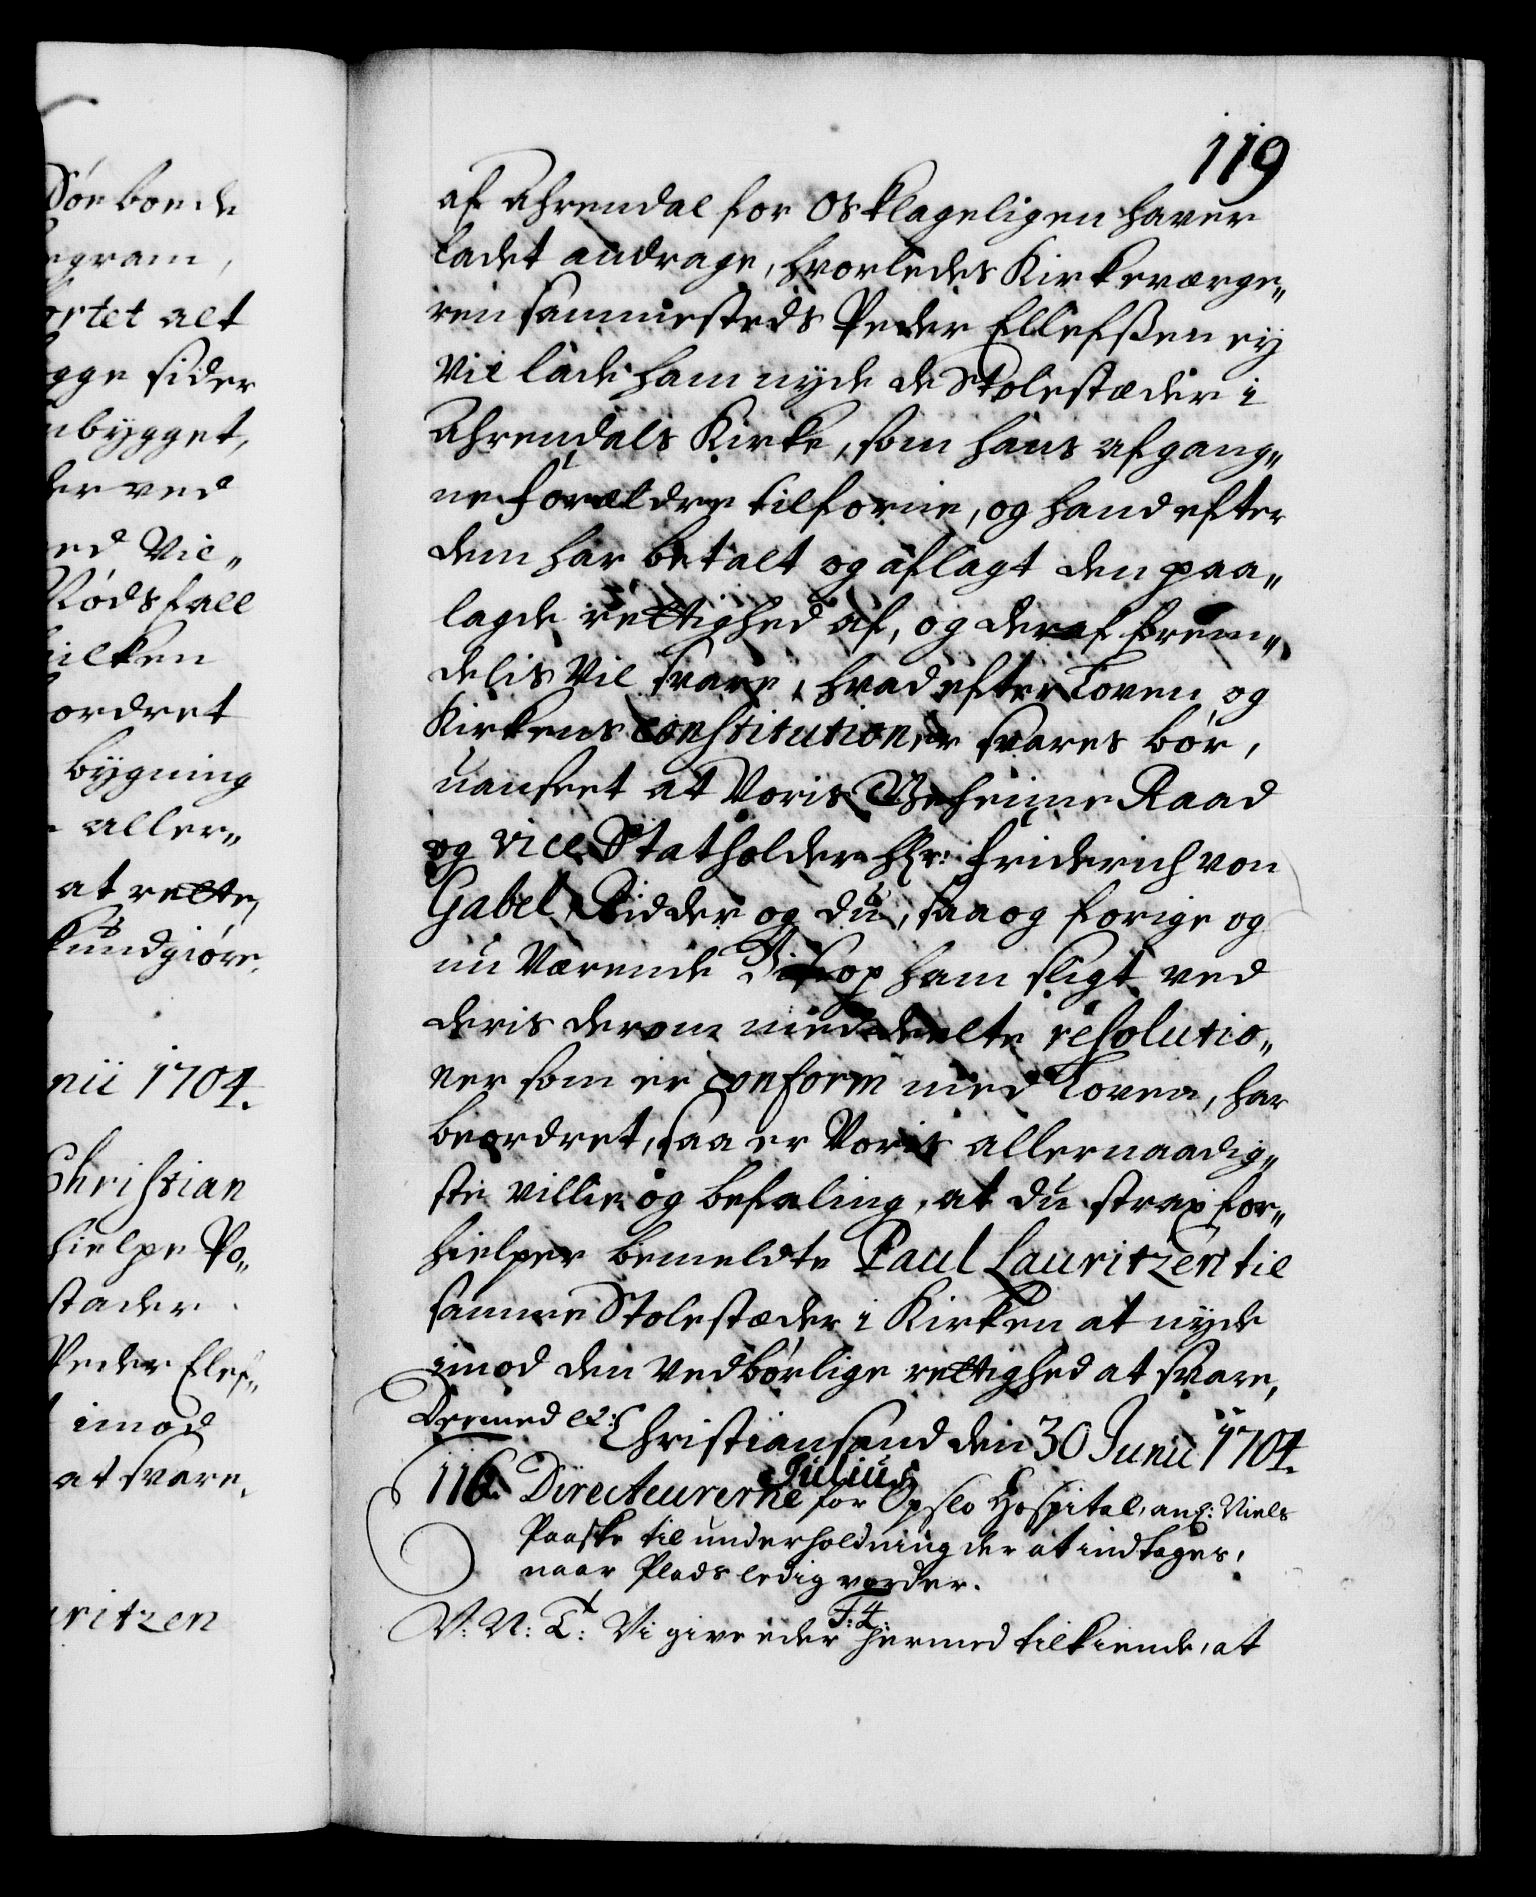 Sørbonde
egram,
ortet alt
gge sider
nbygget,
der ved
ed Vil„
Nødsfall
ilken
ordret
bygning
aller„
at rette,
kundgiøre.
nii 1704.
Christian
hielpe Po„
stader
Peder Elef„
imod
at svare.
uritzen
119
af Ahrendal for Os klageligen haver
ladet andrage, hvorledes Kirkeværge„
ren sammesteds Peder Ellefssen ey
vil lade ham nyde de Stolestæder i
Ahrendals Kirke, som hans afgang„
ne Forældre tilforne, og hand efter
dem har betalt og aflagt den paa„
lagde rettighed af, og deraf frem„
delis vil svare, hvad efter Loven og
Kirkens constitutioner svares bør,
uanseet at Voris Geheime Raad
og vice Statholder Hr: Friderich von
Gabel, Ridder og du, saa og forige og
nu Værende Biscop ham sligt ved
deris derom meddeelte resolutio„
ner som er conform med Loven, har
beordret, saa er Voris allernaadig„
ste villie og befaling, at du strax for„
hielper bemeldte Paul Lauritzen til
samme Stolestæder i Kirken at nyde
imod den vedbørlige rettighed at svare,
Dermed etc: Christiansand den 30 Junii 1704.
Julius
116. Directeurerne for Opslo Hospital, anl: Niels
Paaske til underholdning der at indtages,
naar Plads ledig vorder.
F: 4.
V: N: T: Vi give eder hermed tilkiende, at